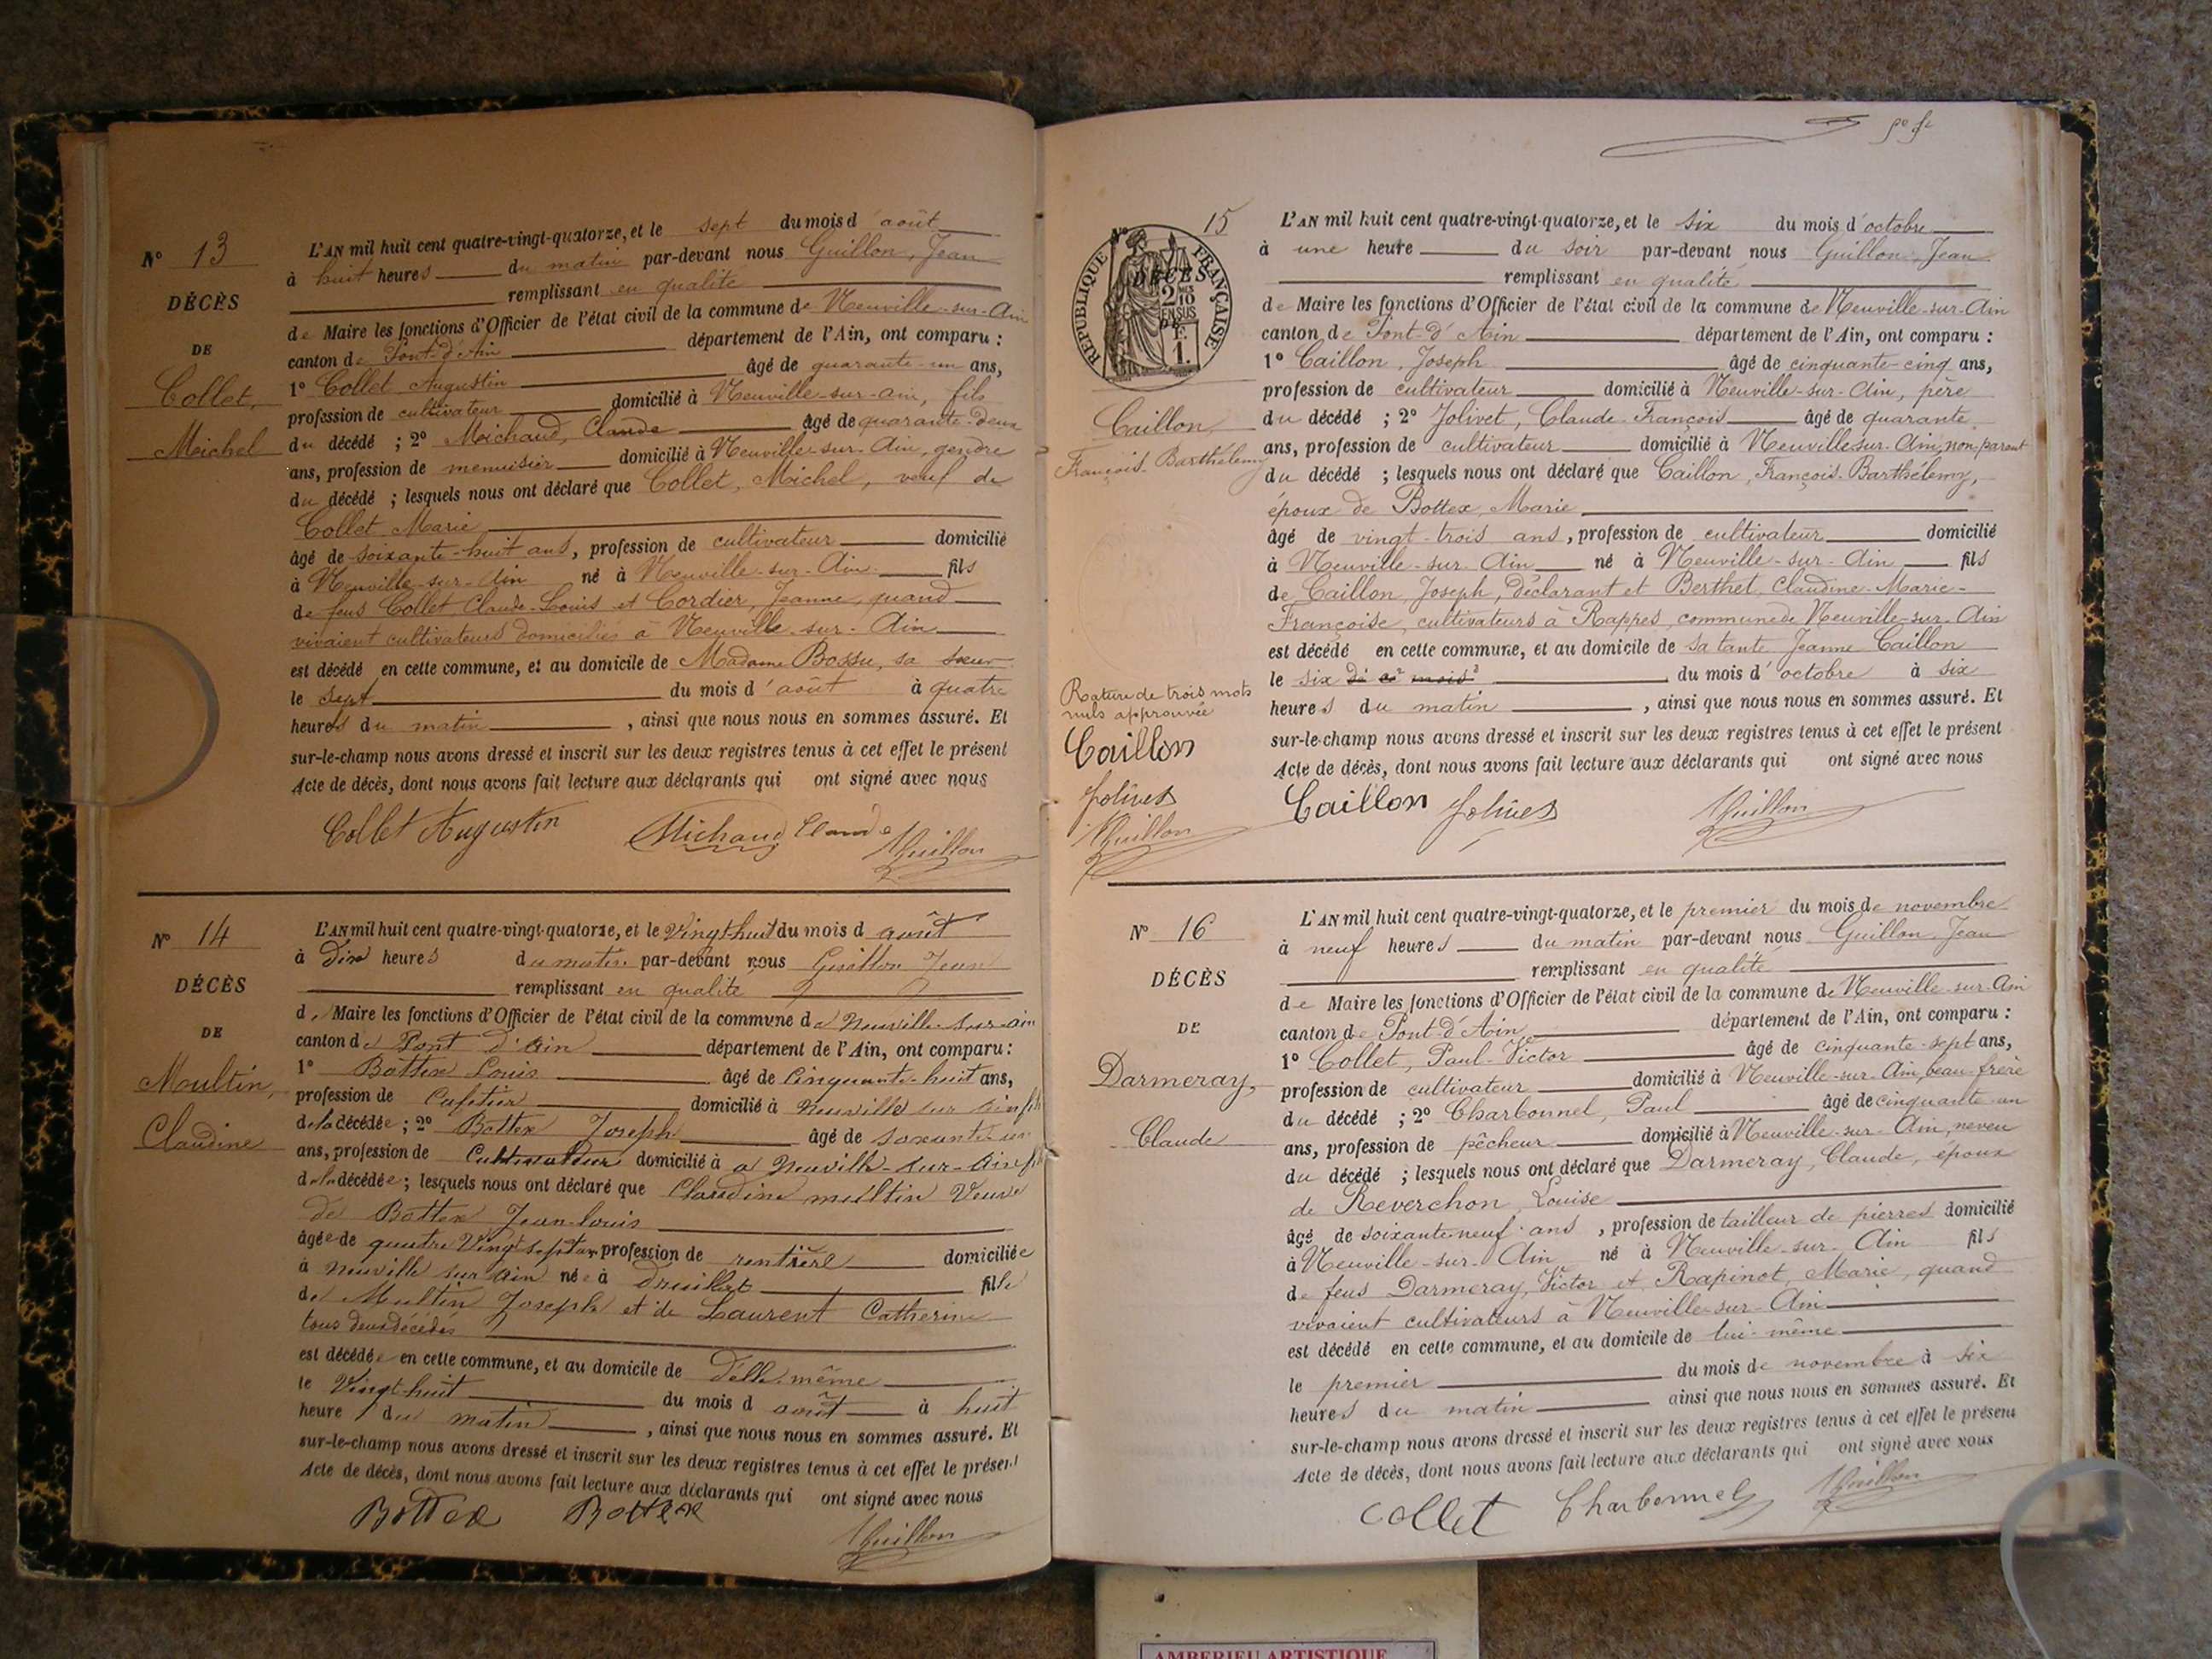 N° 13
DÉCÈS
DE
Collet,
Michel
L'AN mil huit cent quatre-vingt-quatorze, et le sept du mois d'août
à huit heures du matin par-devant nous Guillon, Jean
remplissant en qualité
de Maire les fonctions d'Officier de l'état civil de la commune de Neuville-sur-Ain
canton de Pont-d'Ain département de l'Ain, ont comparu :
1° Collet Augustin âgé de quarante-un ans,
profession de cultivateur domicilié à Neuville-sur-Ain, fils
du décédé ; 2° Michaud, Claude âgé de quarante-deux
ans, profession de menuisier domicilié à Neuville-sur-Ain, gendre
du décédé ; lesquels nous ont déclaré que Collet, Michel, veuf de
Collet Marie
âgé de soixante-huit ans, profession de cultivateur domicilié
à Neuville-sur-Ain né à Neuville-sur-Ain fils
de feus Collet Claude-Louis et Cordier, Jeanne, quand
vivaient cultivateurs domiciliés à Neuville-sur-Ain
est décédé en cette commune, et au domicile de Madame Bossu, sa sœur
le sept du mois d'août à quatre
heures du matin, ainsi que nous nous en sommes assuré. Et
sur-le-champ nous avons dressé et inscrit sur les deux registres tenus à cet effet le présent
Acte de décès, dont nous avons fait lecture aux déclarants qui ont signé avec nous
Collet Augustin Michaud Claude JGuillon
N° 14
DÉCÈS
DE
Moultin,
Claudine
L'AN mil huit cent quatre-vingt-quatorze, et le Vingt-huit du mois d août
à Dix heures du matin par-devant nous Guillon Jean
remplissant en qualité
de Maire les fonctions d'Officier de l'état civil de la commune de Neuville-sur-ain
canton de Pont d'ain département de l'Ain, ont comparu :
1° Bottex Louis âgé de Cinquante-huit ans,
profession de Cafetier domicilié à Neuville sur ain fils
de la décédée ; 2° Bottex Joseph âgé de soixante un
ans, profession de Cultivateur domicilié à a Neuville-sur-Ain fils
de la décédée ; lesquels nous ont déclaré que Claudine Multin Veuve
de Bottex Jean-Louis
âgée de quatre Vingt sept an profession de rentière domiciliée
à Neuville sur Ain née à Druillat fille
de Multin Joseph et de Laurent Catherine
tous deux décédés
est décédée en cette commune, et au domicile de D'elle même
le Vingt-huit du mois d août à huit
heure du matin, ainsi que nous nous en sommes assuré. Et
sur-le-champ nous avons dressé et inscrit sur les deux registres tenus à cet effet le présent
Acte de décès, dont nous avons fait lecture aux déclarants qui ont signé avec nous
Bottex Bottex JGuillon
N° 15
RÉPUBLIQUE FRANÇAISE
DÉCÈS
2/10 EN SUS
1 F.
Caillon
François-Barthélemy
Rature de trois mots
nuls approuvée
Caillon
Jolivet
JGuillon
L'AN mil huit cent quatre-vingt-quatorze, et le six du mois d'octobre
à une heure du soir par-devant nous Guillon Jean
remplissant en qualité
de Maire les fonctions d'Officier de l'état civil de la commune de Neuville-sur-Ain
canton de Pont-d'Ain département de l'Ain, ont comparu :
1° Caillon, Joseph âgé de cinquante-cinq ans,
profession de cultivateur domicilié à Neuville-sur-Ain, père
du décédé ; 2° Jolivet, Claude-François âgé de quarante
ans, profession de cultivateur domicilié à Neuville-sur-Ain, non-parent
du décédé ; lesquels nous ont déclaré que Caillon, François-Barthélemy,
époux de Bottex, Marie
âgé de vingt-trois ans, profession de cultivateur domicilié
à Neuville-sur-Ain né à Neuville-sur-Ain fils
de Caillon, Joseph, déclarant et Berthet, Claudine-Marie-
Françoise, cultivateurs à Rappes, commune de Neuville-sur-Ain
est décédé en cette commune, et au domicile de sa tante Jeanne Caillon
le six de ce mois du mois d'octobre à six
heures du matin, ainsi que nous nous en sommes assuré. Et
sur-le-champ nous avons dressé et inscrit sur les deux registres tenus à cet effet le présent
Acte de décès, dont nous avons fait lecture aux déclarants qui ont signé avec nous
Caillon Jolivet JGuillon
N° 16
DÉCÈS
DE
Darmeray,
Claude
L'AN mil huit cent quatre-vingt-quatorze, et le premier du mois de novembre
à neuf heures du matin par-devant nous Guillon, Jean
remplissant en qualité
de Maire les fonctions d'Officier de l'état civil de la commune de Neuville-sur-Ain
canton de Pont-d'Ain département de l'Ain, ont comparu :
1° Collet, Paul-Victor âgé de cinquante-sept ans,
profession de cultivateur domicilié à Neuville-sur-Ain, beau-frère
du décédé ; 2° Charbonnel, Paul âgé de cinquante-un
ans, profession de pêcheur domicilié à Neuville-sur-Ain, neveu
du décédé ; lesquels nous ont déclaré que Darmeray, Claude, époux
de Reverchon, Louise
âgé de soixante-neuf ans, profession de tailleur de pierres domicilié
à Neuville-sur-Ain né à Neuville-sur-Ain fils
de feus Darmeray, Victor et Rapinot, Marie, quand
vivaient cultivateurs à Neuville-sur-Ain
est décédé en cette commune, et au domicile de lui-même
le premier du mois de novembre à six
heures du matin ainsi que nous nous en sommes assuré. Et
sur-le-champ nous avons dressé et inscrit sur les deux registres tenus à cet effet le présent
Acte de décès, dont nous avons fait lecture aux déclarants qui ont signé avec nous
Collet Charbonnel JGuillon
AMBERIEU ARTISTIQUE